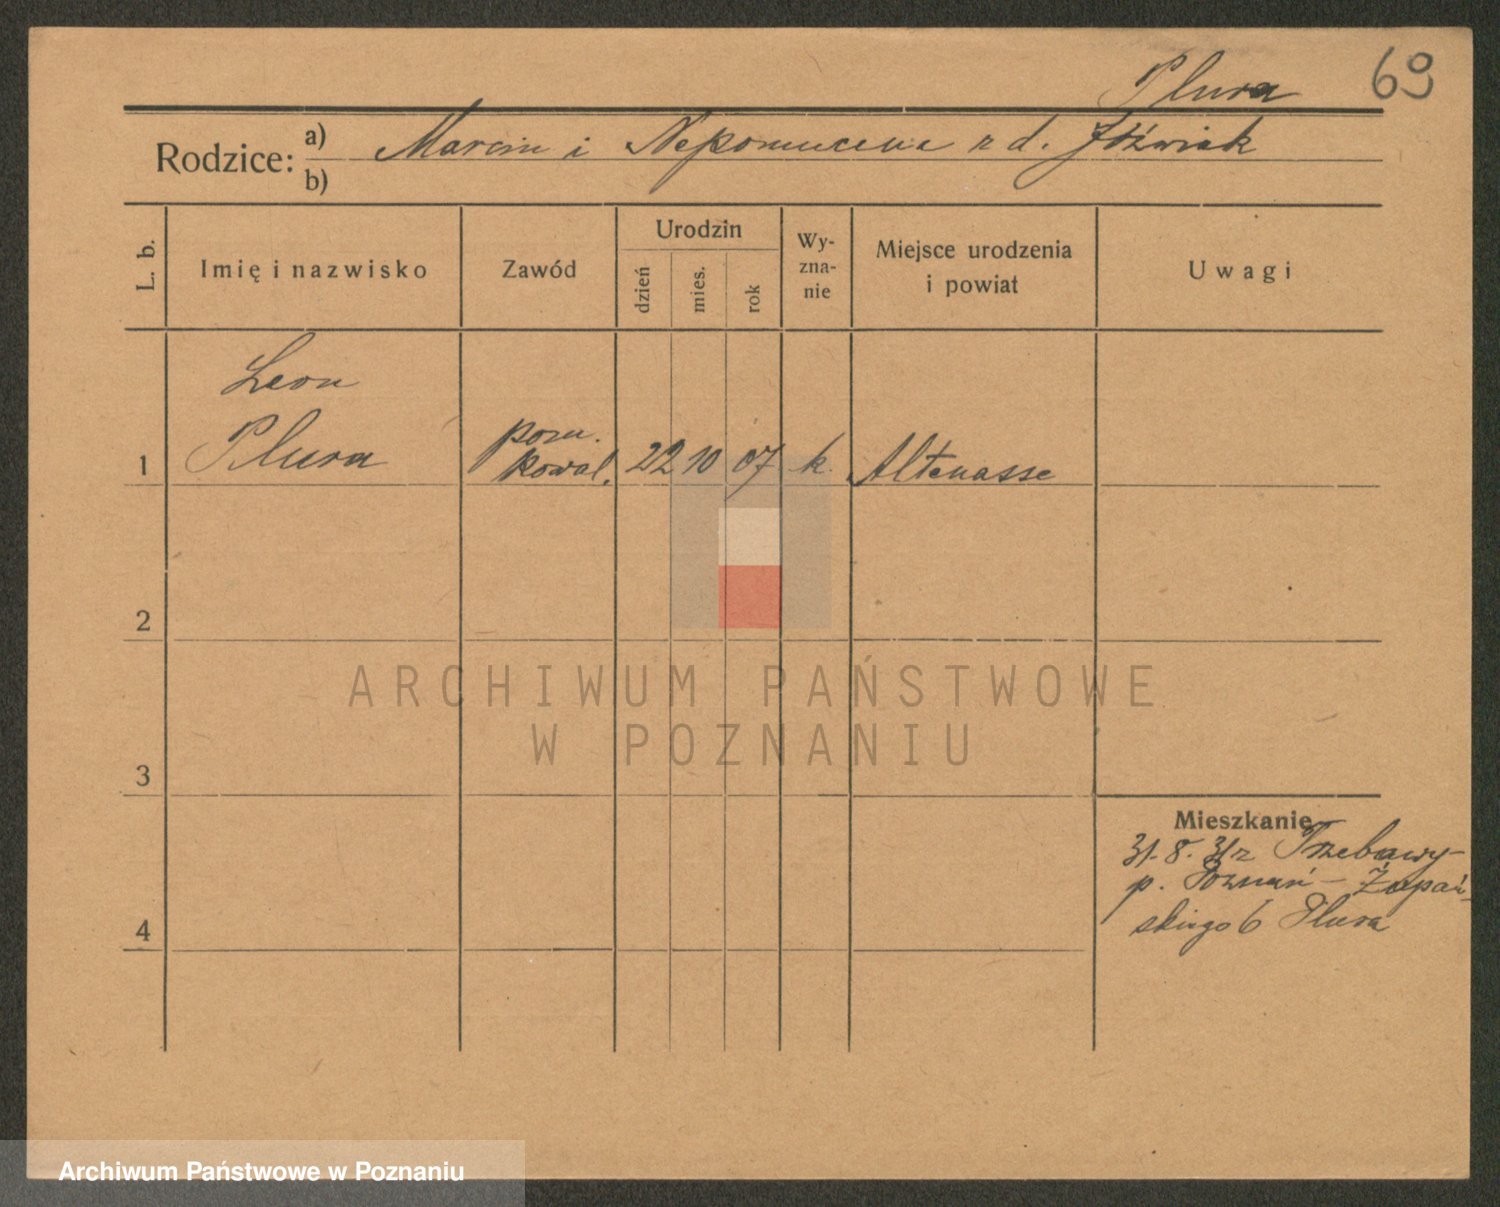 Plura 69
Rodzice: a) Marcin i Nepomucena z d. Jóźwiak
b)
L. b. Imię i nazwisko Zawód Urodzin dzień mies. rok Wy-zna-nie Miejsce urodzenia i powiat Uwagi
Leon
1 Plura pom. kowal. 22 10 07 k. Altenasse
2
ARCHIWUM PAŃSTWOWE
W POZNANIU
3
Mieszkanie
31.8.31 z Trzebawy
p. Poznań – Żupań-
4 skiego 6 Plura
Archiwum Państwowe w Poznaniu